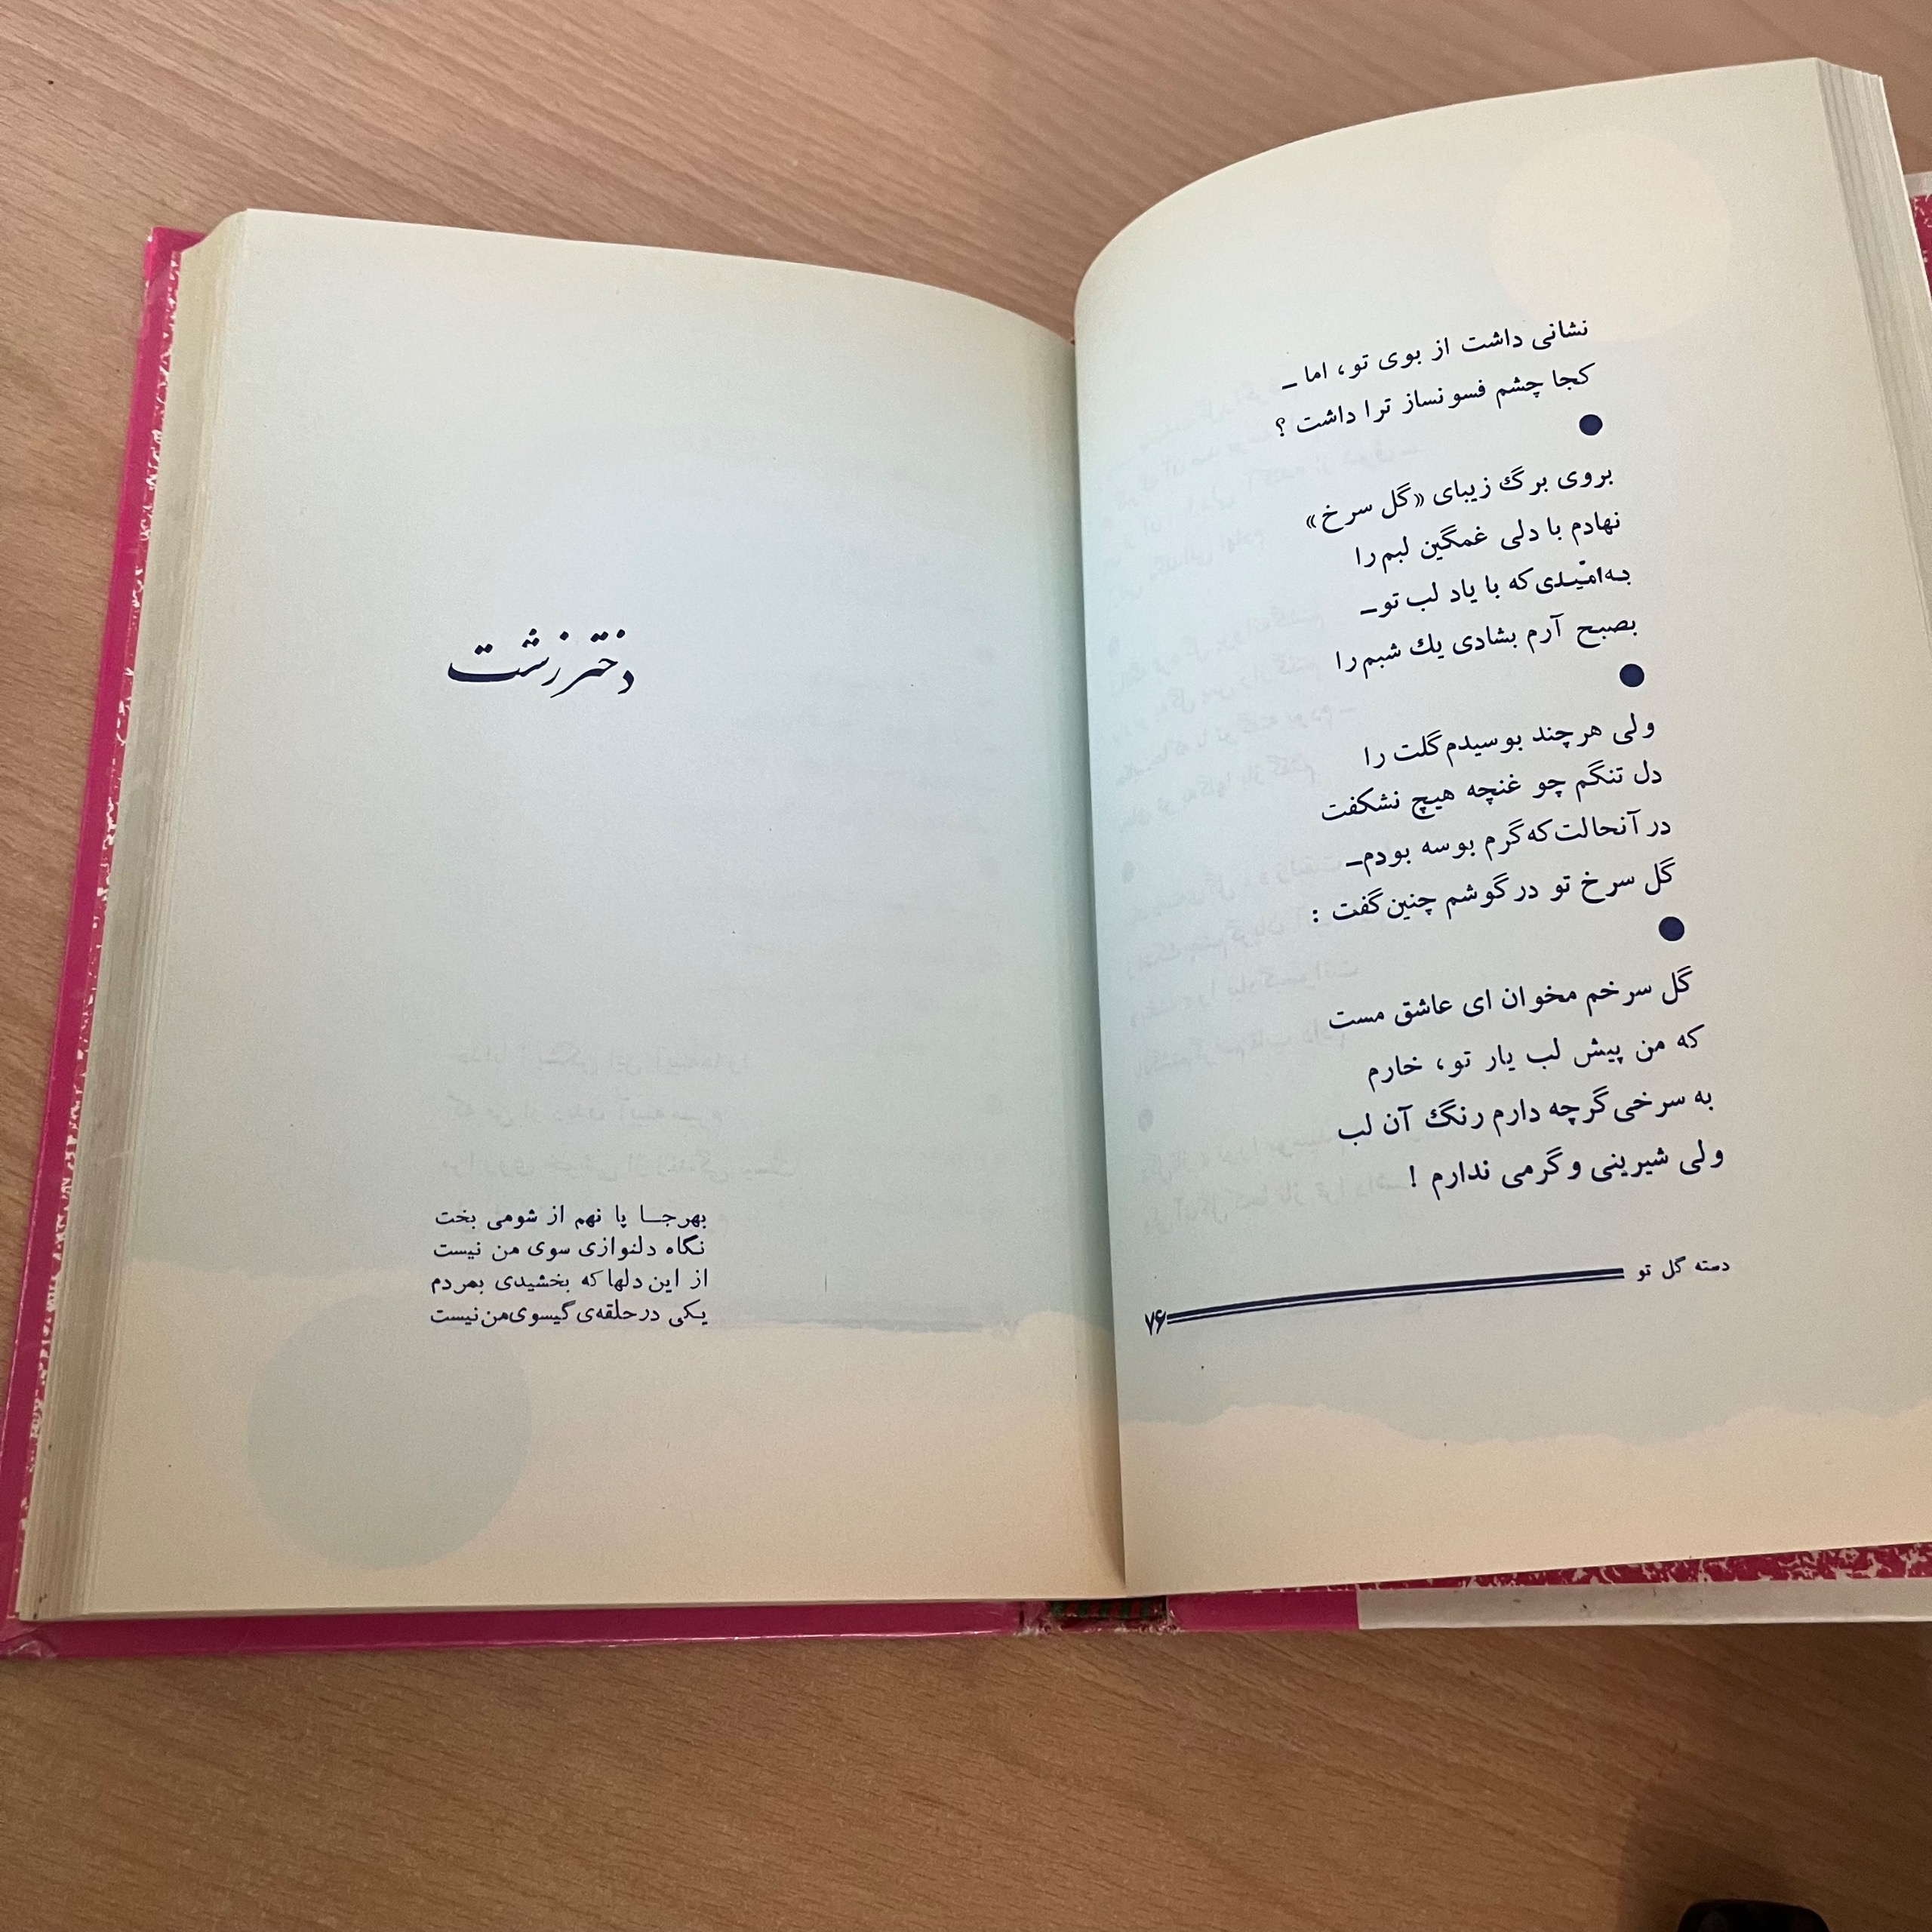 نشانی داشت از بوی تو، اما ـ
کجا چشم فسونساز ترا داشت ؟
●
بروی برگ زیبای «گل سرخ»
نهادم با دلی غمگین لبم را
به امّیدی که با یاد لب تو ـ
بصبح آرم بشادی یك شبم را
●
ولی هرچند بوسیدم گلت را
دل تنگم چو غنچه هیچ نشکفت
در آنحالت که گرم بوسه بودم ـ
گل سرخ تو در گوشم چنین گفت :
●
گل سرخم مخوان ای عاشق مست
که من پیش لب یار تو، خارم
به سرخی گرچه دارم رنگ آن لب
ولی شیرینی و گرمی ندارم !
دسته گل تو
۷۶
دختر زشت
بهرجا پا نهم از شومی بخت
نگاه دلنوازی سوی من نیست
از این دلها که بخشیدی بمردم
یکی در حلقه‌ی گیسوی من نیست